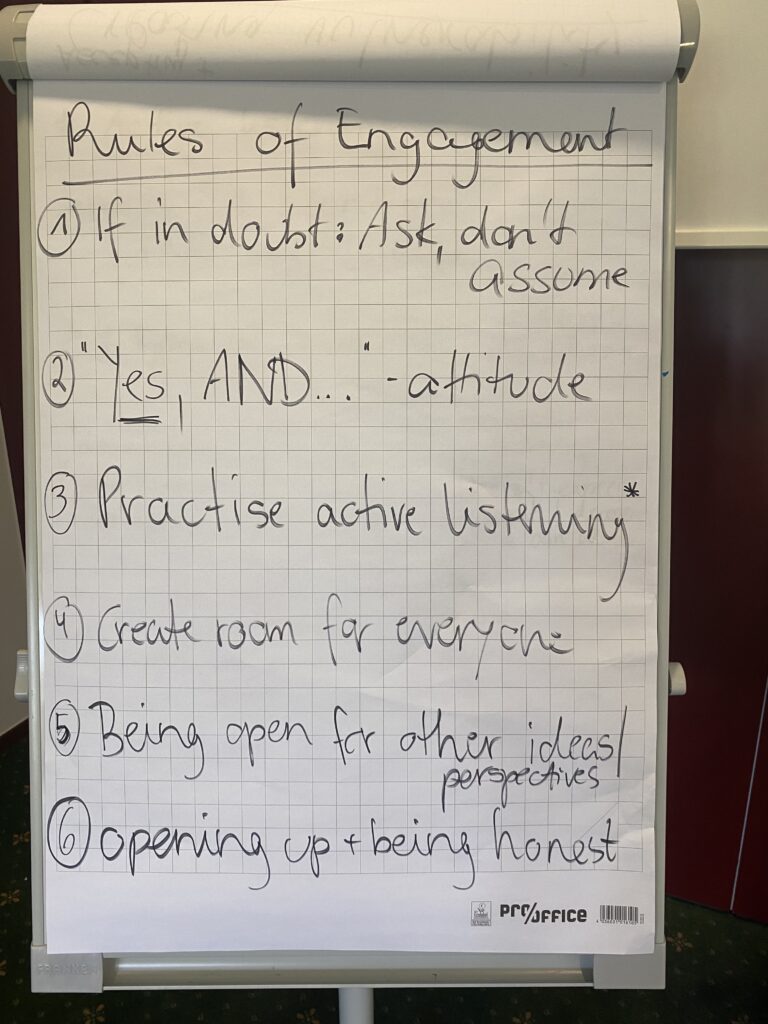 Creative vulnerability
Rules of Engagement
① If in doubt: Ask, don't
assume
② "Yes, AND..." - attitude
③ Practise active listening*
④ Create room for everyone
⑤ Being open for other ideas/
perspectives
⑥ opening up + being honest
PRO/OFFICE
FRANKEN